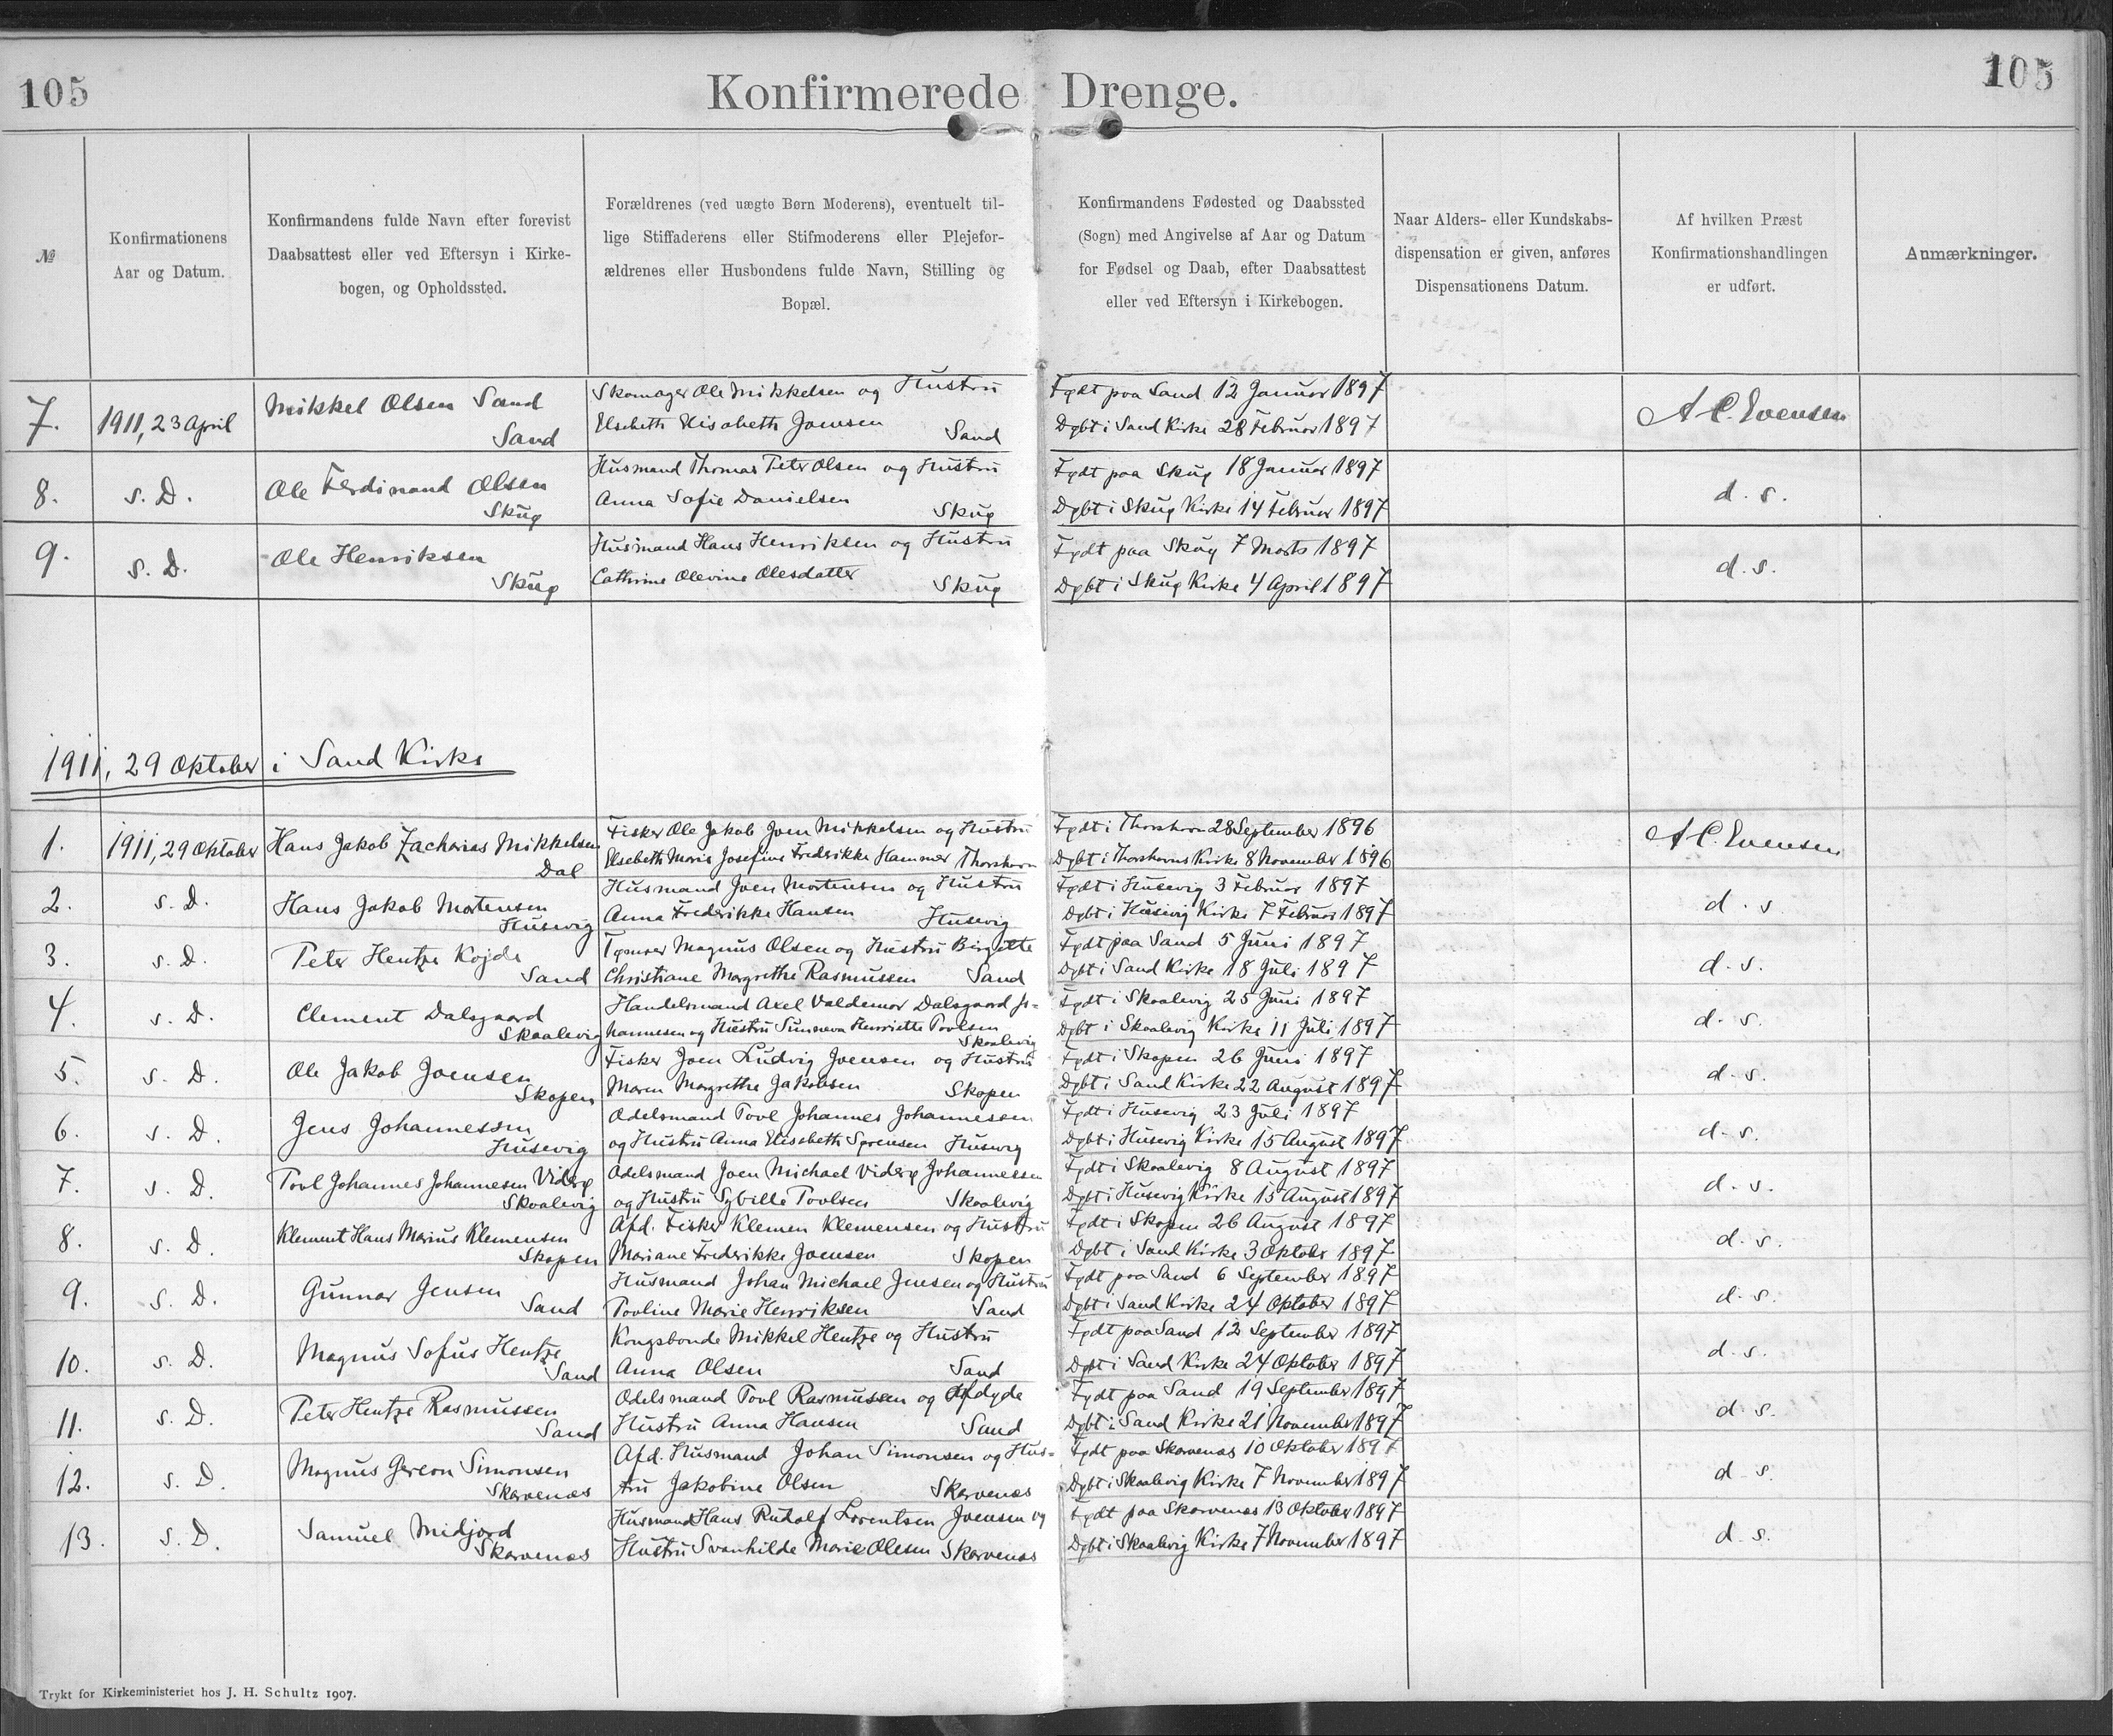 105
Konfirmerede Drenge.
105
№
Konfirmationens
Aar og Datum.
Konfirmandens fulde Navn efter forevist
Daabsattest eller ved Eftersyn i Kirke-
bogen, og Opholdssted.
Forældrenes (ved uægte Børn Moderens), eventuelt til-
lige Stiffaderens eller Stifmoderens eller Plejefor-
ældrenes eller Husbondens fulde Navn, Stilling og
Bopæl.
Konfirmandens Fødested og Daabssted
(Sogn) med Angivelse af Aar og Datum
for Fødsel og Daab, efter Daabsattest
eller ved Eftersyn i Kirkebogen.
Naar Alders- eller Kundskabs-
dispensation er given, anføres
Dispensationens Datum.
Af hvilken Præst
Konfirmationshandlingen
er udført.
Anmærkninger.
7. 1911, 23 April Mikkel Olsen Sand Skomager Ole Mikkelsen og Hustru Født paa Sand 12 Januar 1897 A C. Evensen
Sand Elsebeth Elisabeth Joensen Sand Døbt i Sand Kirke 28 Februar 1897
8. s. D. Ole Ferdinand Olsen Husmand Thomas Peter Olsen og Hustru Født paa Skug 18 Januar 1897 d. s.
Skug Anna Sofie Danielsen Skug Døbt i Skug Kirke 14 Februar 1897
9. s. D. Ole Henriksen Husmand Hans Henriksen og Hustru Født paa Skug 7 Marts 1897 d. s.
Skug Cathrine Olevine Olesdatter Skug Døbt i Skug Kirke 4 April 1897
1911, 29 Oktober i Sand Kirke
1. 1911, 29 Oktober Hans Jakob Zacharias Mikkelsen Fisker Ole Jakob Joen Mikkelsen og Hustru Født i Thorshavn 28 September 1896 A C. Evensen
Dal Elsebeth Marie Josefine Frederikke Hammer Thorshavn Døbt i Thorshavns Kirke 8 November 1896
2. s. D. Hans Jakob Mortensen Husmand Joen Mortensen og Hustru Født i Husevig 3 Februar 1897 d. s
Husevig Anna Frederikke Hansen Husevig Døbt i Husevig Kirke 7 Februar 1897
3. s. D. Peter Hentze Kojde Tømrer Magnus Olsen og Hustru Birgitte Født paa Sand 5 Juni 1897 d. s.
Sand Christiane Margrethe Rasmussen Sand Døbt i Sand Kirke 18 Juli 1897
4. s. D. Clement Dalsgaard Handelsmand Axel Valdemar Dalsgaard Jo- Født i Skaalevig 25 Juni 1897 d. s.
Skaalevig hannesen og Hustru Sunneva Henriette Poulsen Skaalevig Døbt i Skaalevig Kirke 11 Juli 1897
5. s. D. Ole Jakob Joensen Fisker Joen Ludvig Joensen og Hustru Født i Skopen 26 Juni 1897 d. s.
Skopen Maren Margrethe Jakobsen Skopen Døbt i Sand Kirke 22 August 1897
6. s. D. Jens Johannessen Odelsmand Povl Johannes Johannessen Født i Husevig 23 Juli 1897 d. s.
Husevig og Hustru Anna Elisabeth Sørensen Husevig Døbt i Husevig Kirke 15 August 1897
7. s. D. Povl Johannes Johannesen Viderø Odelsmand Joen Michael Viderø Johannessen Født i Skaalevig 8 August 1897 d. s.
Skaalevig og Hustru Sybille Poulsen Skaalevig Døbt i Husevig Kirke 15 August 1897
8. s. D. Klement Hans Marius Klemensen Afd. Fisker Klemen Klemensen og Hustru Født i Skopen 26 August 1897 d. s.
Skopen Mariane Frederikke Joensen Skopen Døbt i Sand Kirke 3 Oktobr 1897
9. s. D. Gunnar Jensen Husmand Johan Michael Jensen og Hustru Født paa Sand 6 September 1897 d. s.
Sand Povline Marie Henriksen Sand Døbt i Sand Kirke 24 Oktober 1897
10. s. D. Magnus Sofus Hentze Kongsbonde Mikkel Hentze og Hustru Født paa Sand 12 September 1897 d. s.
Sand Anna Olsen Sand Døbt i Sand Kirke 24 Oktober 1897
11. s. D. Peter Hentze Rasmussen Odelsmand Povl Rasmussen og Afdøde Født paa Sand 19 September 1897 d. s.
Sand Hustru Anna Hansen Sand Døbt i Sand Kirke 21 November 1897
12. s. D. Magnus Gereon Simonsen Afd. Husmand Johan Simonsen og Hus- Født paa Skarvenæs 10 Oktober 1897 d. s.
Skarvenæs tru Jakobine Olsen Skarvenæs Døbt i Skaalevig Kirke 7 November 1897
13. s. D. Samuel Midjord Husmand Hans Rudolf Lorentsen Joensen og Født paa Skarvenæs 13 Oktober 1897 d. s.
Skarvenæs Hustru Svanhilde Marie Olesen Skarvenæs Døbt i Skaalevig Kirke 7 November 1897
Trykt for Kirkeministeriet hos J. H. Schultz 1907.